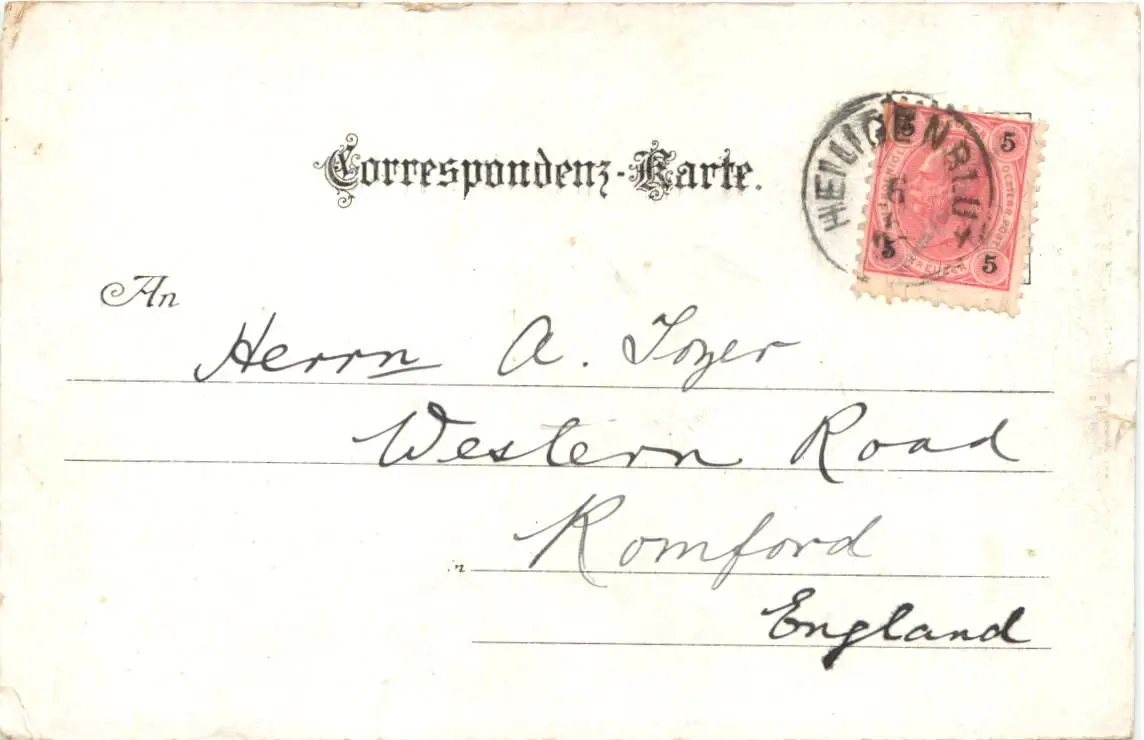 Correspondenz-Karte.
HEILIGENBLUT
5 5
5 5
An
Herrn A. Tozer
Western Road
in Romford
England